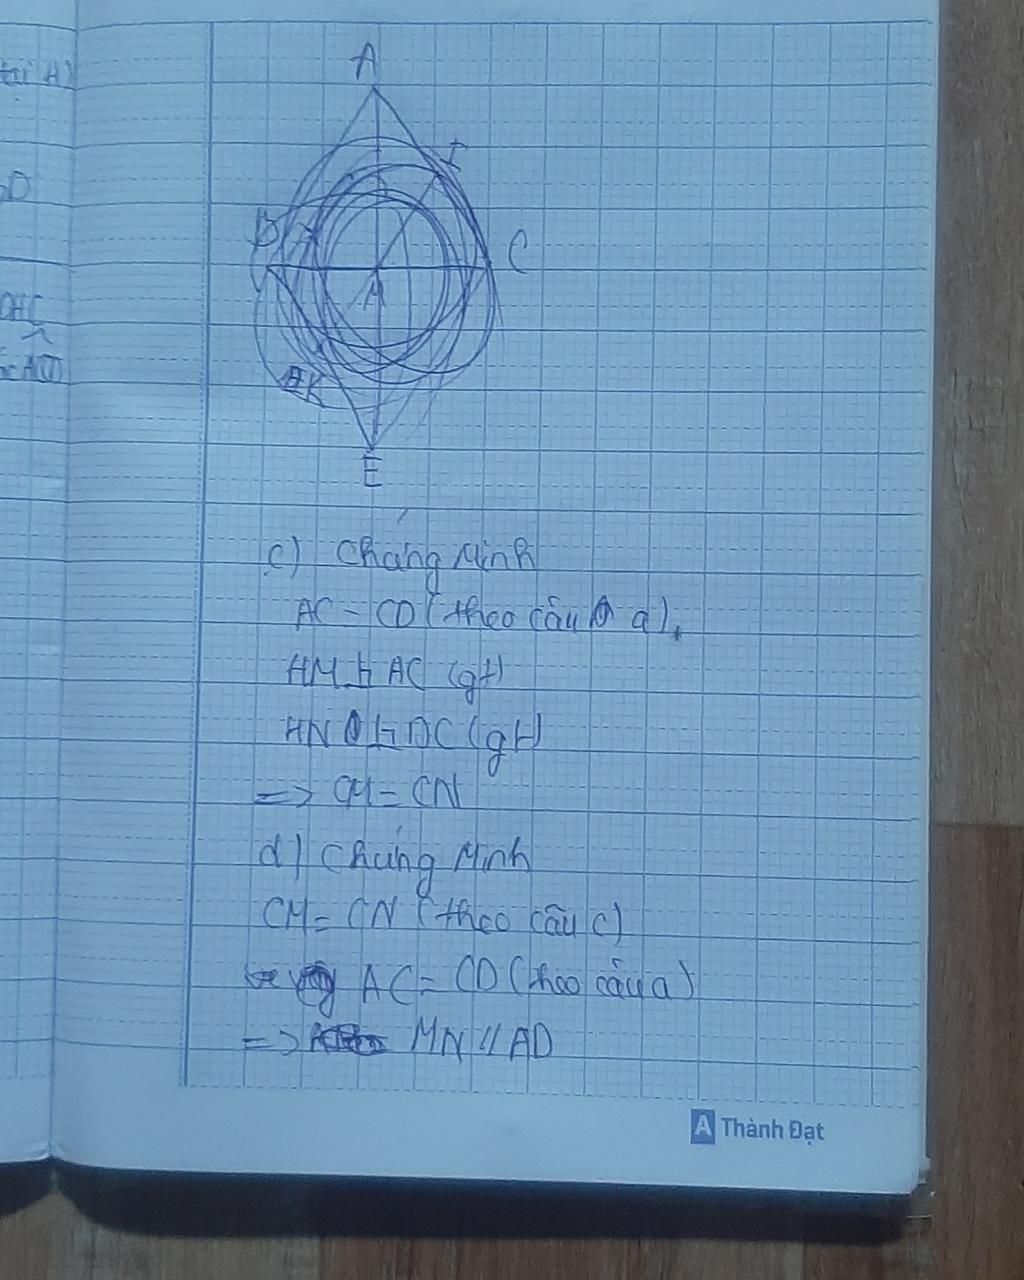 tại A)
D
A
I
B
H
C
H
K
E
c) Chứng Minh
AC = CD (theo câu a),
HM ⊥ AC (gt)
HN ⊥ DC (gt)
=> CM = CN
d) Chứng Minh
CM = CN (theo câu c)
AC = CD (theo câu a)
=> MN // AD
A Thành Đạt